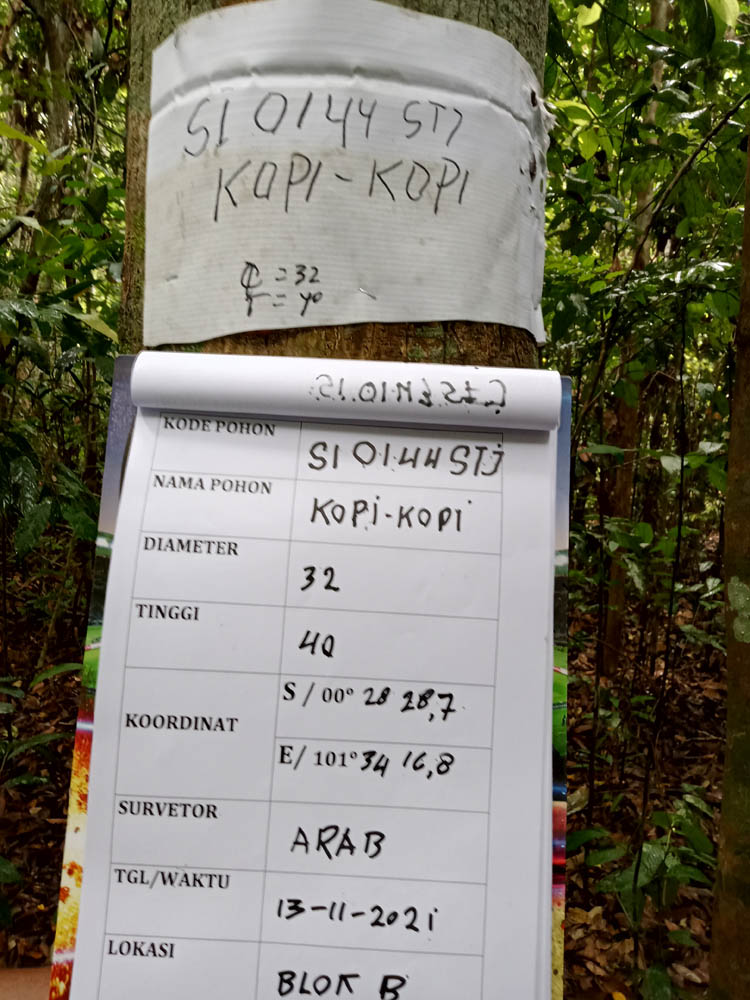 SI 0144 STJ
KOPI-KOPI
= 32
T = 40
KODE POHON SI 0144 STJ
NAMA POHON KOPI-KOPI
DIAMETER 32
TINGGI 40
KOORDINAT
S / 00° 28 28,7
E/ 101° 34 16,8
SURVETOR ARAB
TGL/WAKTU 13-11-2021
LOKASI BLOK B